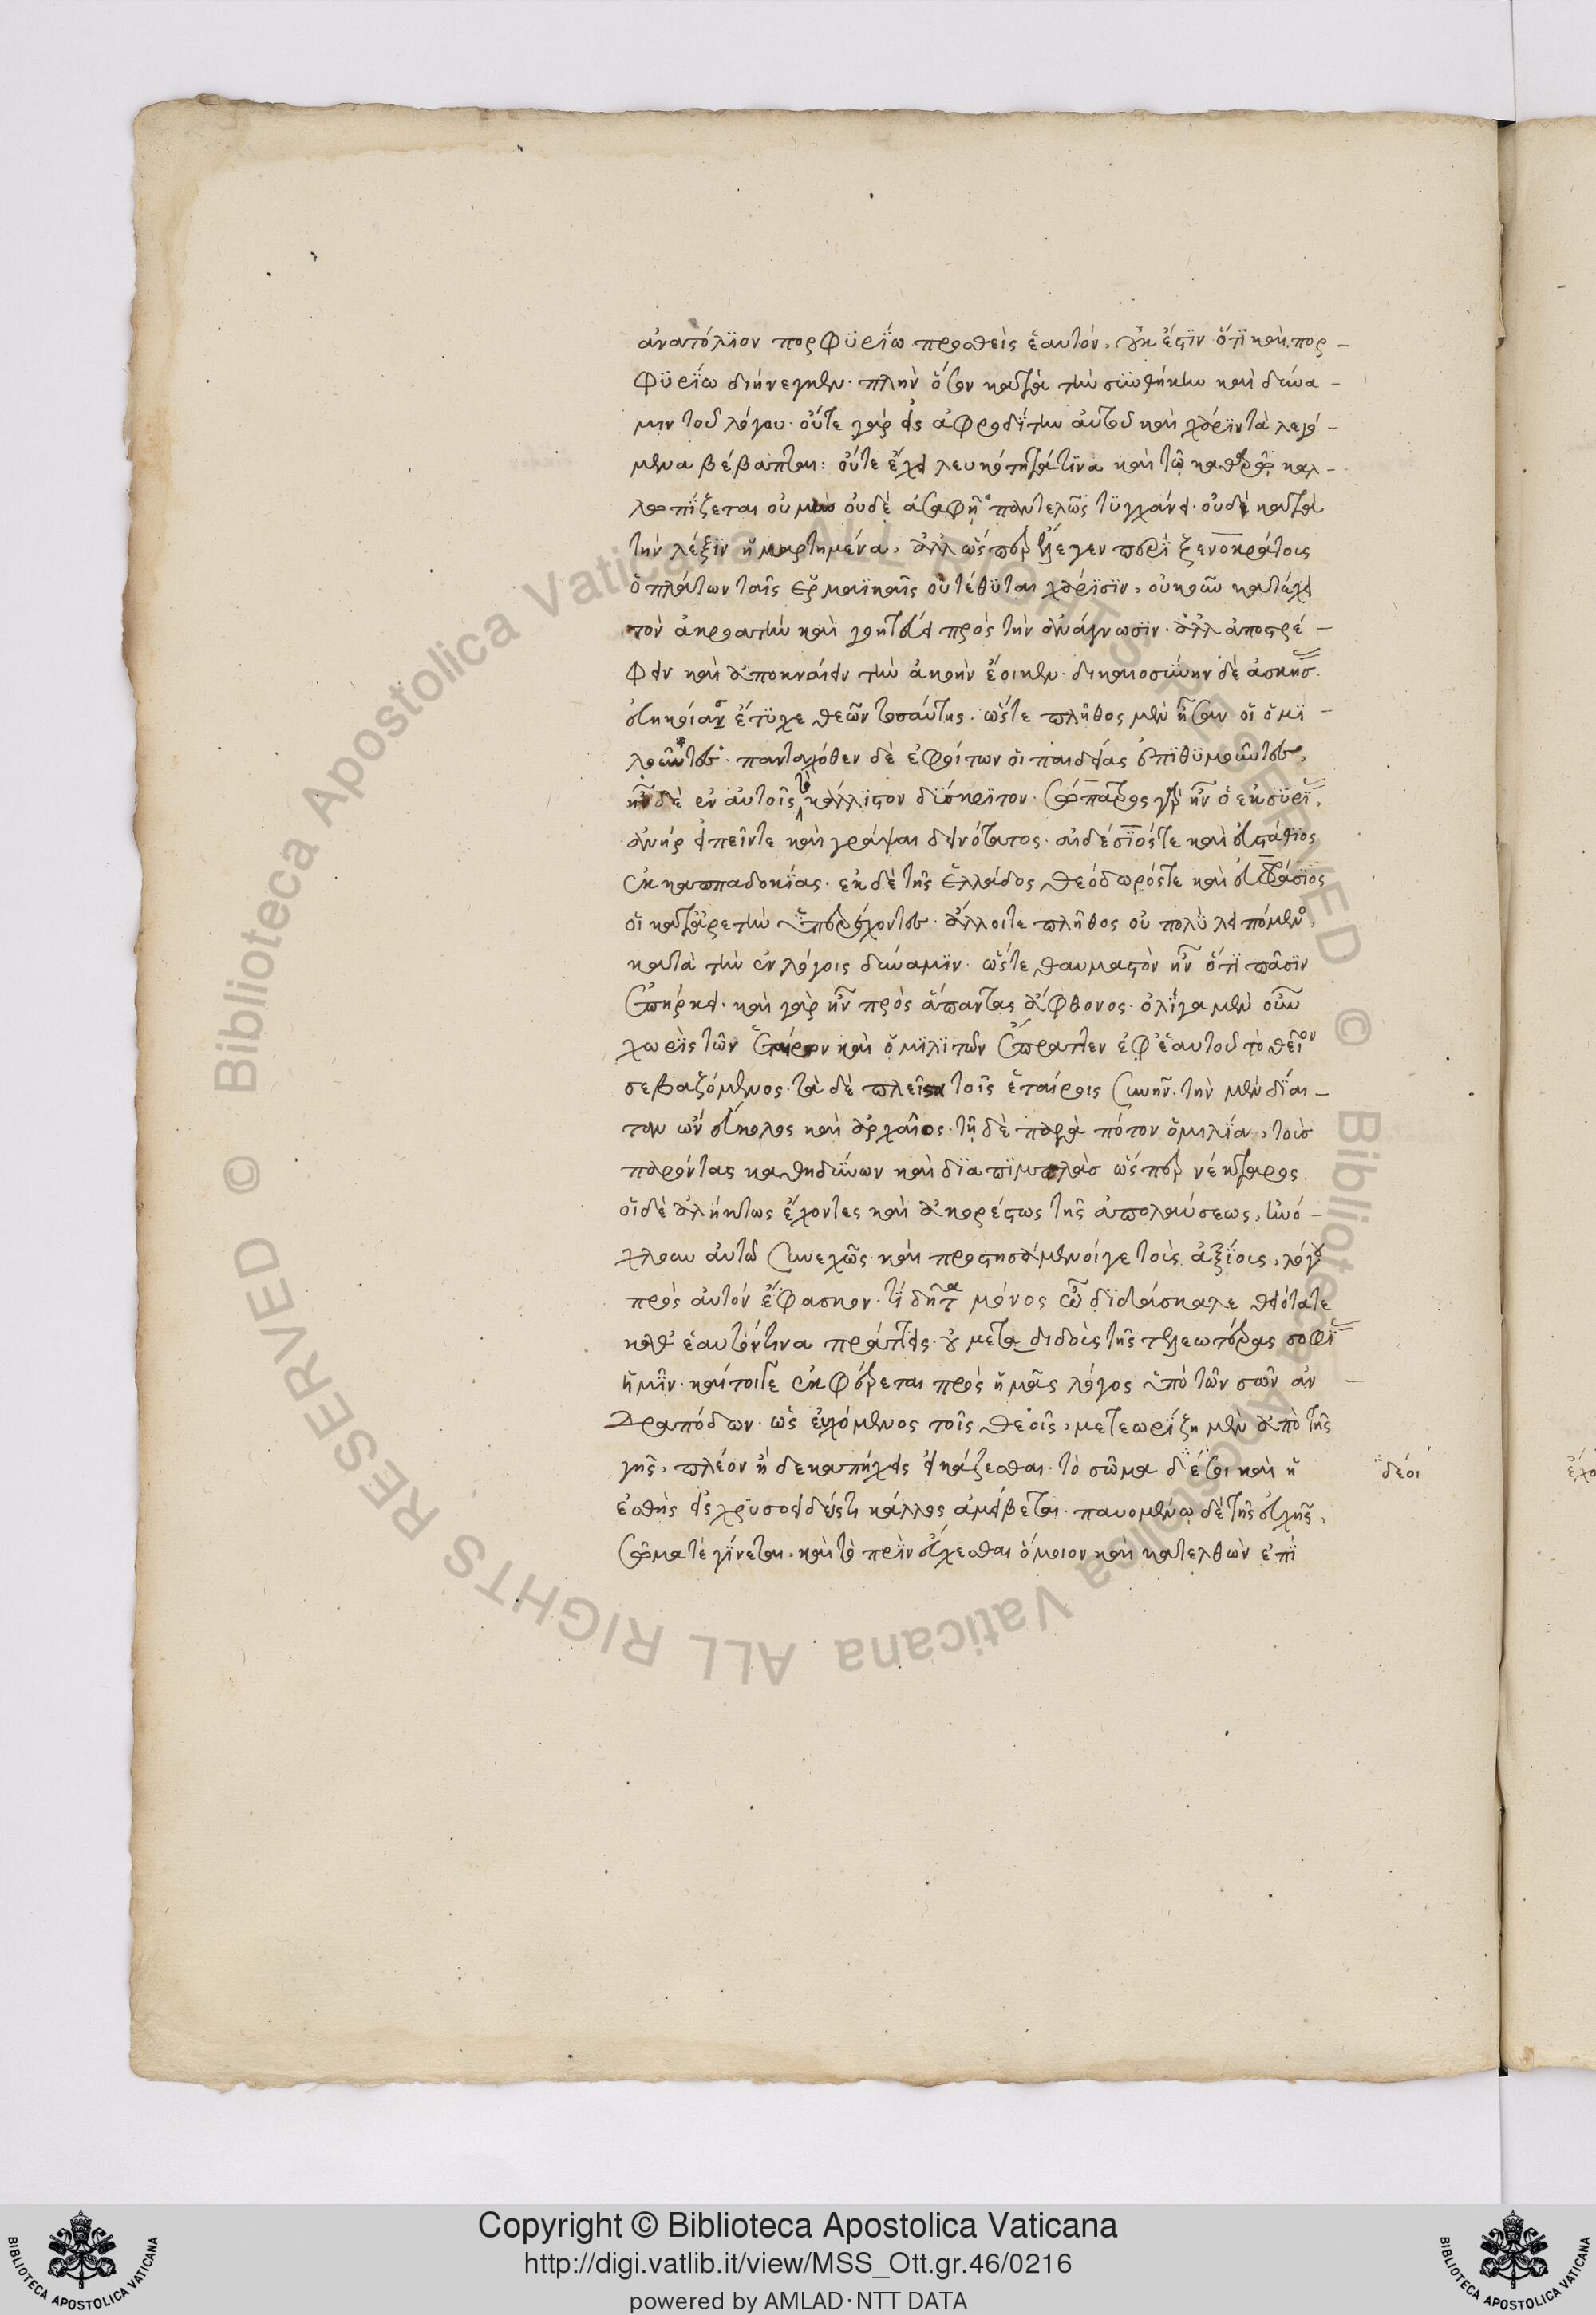 ἀνατόλϊον πορφϋρΐω προσθεὶς ἑαυτόν, οὐκ ἔστϊν ὅτϊ καὶ πορ-
φϋρΐω διήνεγκεν. πλὴν ὅσον κατὰ τὴν συνθήκην καὶ δύνα-
μιν τοῦ λόγου. οὔτε γὰρ εἰς ἀφροδΐτην αὐτοῦ καὶ χάρϊν τὰ λεγό-
μενα βέβαπται: οὔτε ἔχει λευκότητά τϊνα καὶ τῶ καθαρῶ καλ-
λωπΐζεται οὐ μὴν οὐδὲ ἀσαφῆ παντελῶς τϋγχάνει. οὐδὲ κατὰ
τὴν λέξϊν ἡμαρτημένα, ἀλλ' ὥσπερ ἔλεγεν περὶ ξενοκράτους
ὁ πλάτων ταῖς ἑρμαϊκαῖς οὐ τέθϋται χάρϊσϊν, οὐκοῦν κατέχει
τὸν ἀκροατὴν καὶ γοητεύει πρὸς τὴν ἀνάγνωσϊν. ἀλλ' ἀποστρέ-
φειν καὶ ἀποκναίειν τὴν ἀκοὴν ἔοικεν. δικαιοσύνην δὲ ἀσκήσ
εὐηκοΐας ἔτϋχε θεῶν τοσαύτης. ὥστε πλῆθος μὲν ἦσαν οἱ ὁμϊ-
λοῦντες. πανταχόθεν δὲ ἐφοίτων οἱ παιδείας ἐπϊθϋμοῦντες,
ἦν δὲ ἐν αὐτοῖς τὸ κάλλιστον δϋσκρϊτον. σώπατρος γὰρ ἦν ὁ ἐκ σϋρϊ,
ἀνὴρ εἰπεῖν τε καὶ γράψαι δεινότατος. αἰδέσϊός τε καὶ εὐστάθϊος
ἐκ καππαδοκΐας. ἐκ δὲ τῆς ἑλλάδος θεόδωρός τε καὶ εὐφράσϊος
οἱ κατ' ἀρετὴν ὑπερέχοντες. ἄλλοι τε πλῆθος οὐ πολὺ λειπόμενοι
κατὰ τὴν ἐν λόγοις δύναμϊν. ὥστε θαυμαστὸν ἦν ὅτϊ πᾶσϊν
ἐπήρκει. καὶ γὰρ ἦν πρὸς ἅπαντας ἄφθονος. ὀλΐγα μὲν οὖν
χωρὶς τῶν ἑταίρων καὶ ὁμϊλϊτῶν ἔπραττεν ἐφ' ἑαυτοῦ τὸ θεῖον
σεβαζόμενος. τὰ δὲ πλεῖστα τοῖς ἑταίροις συνῆν. τὴν μὲν δΐαι-
ταν ὢν εὔκολος καὶ ἀρχαῖος. τῆ δὲ παρὰ πότον ὁμιλΐα, τοὺσ
παρόντας καθηδύνων καὶ δϊαπϊμπλὰσ ὥσπερ νέκταρος.
οἱ δὲ ἀλήκτως ἔχοντες καὶ ἀκορέστως τῆς ἀπολαύσεως, ἠνό-
χλουν αὐτῶ συνεχῶς. καὶ προστησάμενοί γε τοὺς ἀξΐους, λόγου
πρὸς αὐτὸν ἔφασκον. τΐ δῆτα μόνος ὦ δϊδάσκαλε θειότατε
καθ' ἑαυτόν τινα πράττεις. οὐ μεταδιδοὺς τῆς τελεωτέρας σοφΐ
ἡμῖν. καΐτοι γε ἐκφέρεται πρὸς ἡμᾶς λόγος ὑπὸ τῶν σῶν ἀν-
δραπόδων. ὡς εὐχόμενος τοῖς θεοῖς, μετεωρΐζη μὲν ἀπὸ τῆς
γῆς, πλέον ἢ δεκαπήχεις εἰκάζεσθαι. τὸ σῶμα δέ σοι καὶ ἡ
ἐσθὴς εἰς χρϋσοειδές τι κάλλος ἀμείβεται. παυομένω δὲ τῆς εὐχῆς,
σῶμά τε γΐνεται, καὶ τὸ πρὶν εὔχεσθαι ὅμοιον καὶ κατελθὼν ἐπῒ
δέοι